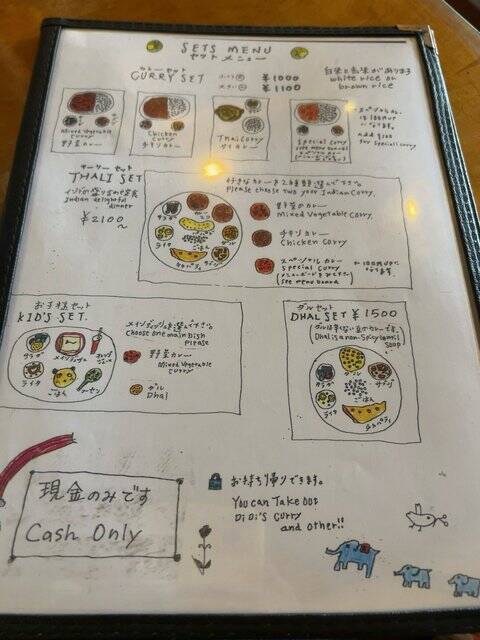 SETS MENU
セットメニュー
カレーセット
CURRY SET
¥1000
¥1100
白米と玄米があります
white rice or
brown rice
Mixed Vegetable
Curry
野菜カレー
Chicken
Curry
チキンカレー
Thai Curry
タイカレー
Special Curry
see menu board
スペシャルカレー
は100円UP
になります。
add ¥100
for special curry
ターリーセット
THALI SET
Indian delightful
dinner
¥2100~
好きなカレーを2種類選んで下さい。
Please choose two your Indian Curry.
野菜のカレー
Mixed Vegetable Curry
チキンカレー
Chicken Curry
スペシャルカレー
Special Curry
see menu board
サブジ
カレー
ダル
ライタ
ごはん
チャパティ
お子様セット
KID'S SET.
メインディッシュを選んで下さい。
Choose one main Dish
Please
野菜カレー
Mixed Vegetable
Curry
ダル
Dhal
サラダ
メインディッシュ
ライタ
ごはん
ダルセット
DHAL SET ¥1500
ダルは辛くない豆のカレーです。
Dhal is a non-spicy lentil
soup
サラダ
ダル
サブジ
ライタ
ごはん
チャパティ
現金のみです
Cash Only
お持ち帰りできます。
You can Take out
DiDi's Curry
and other!!